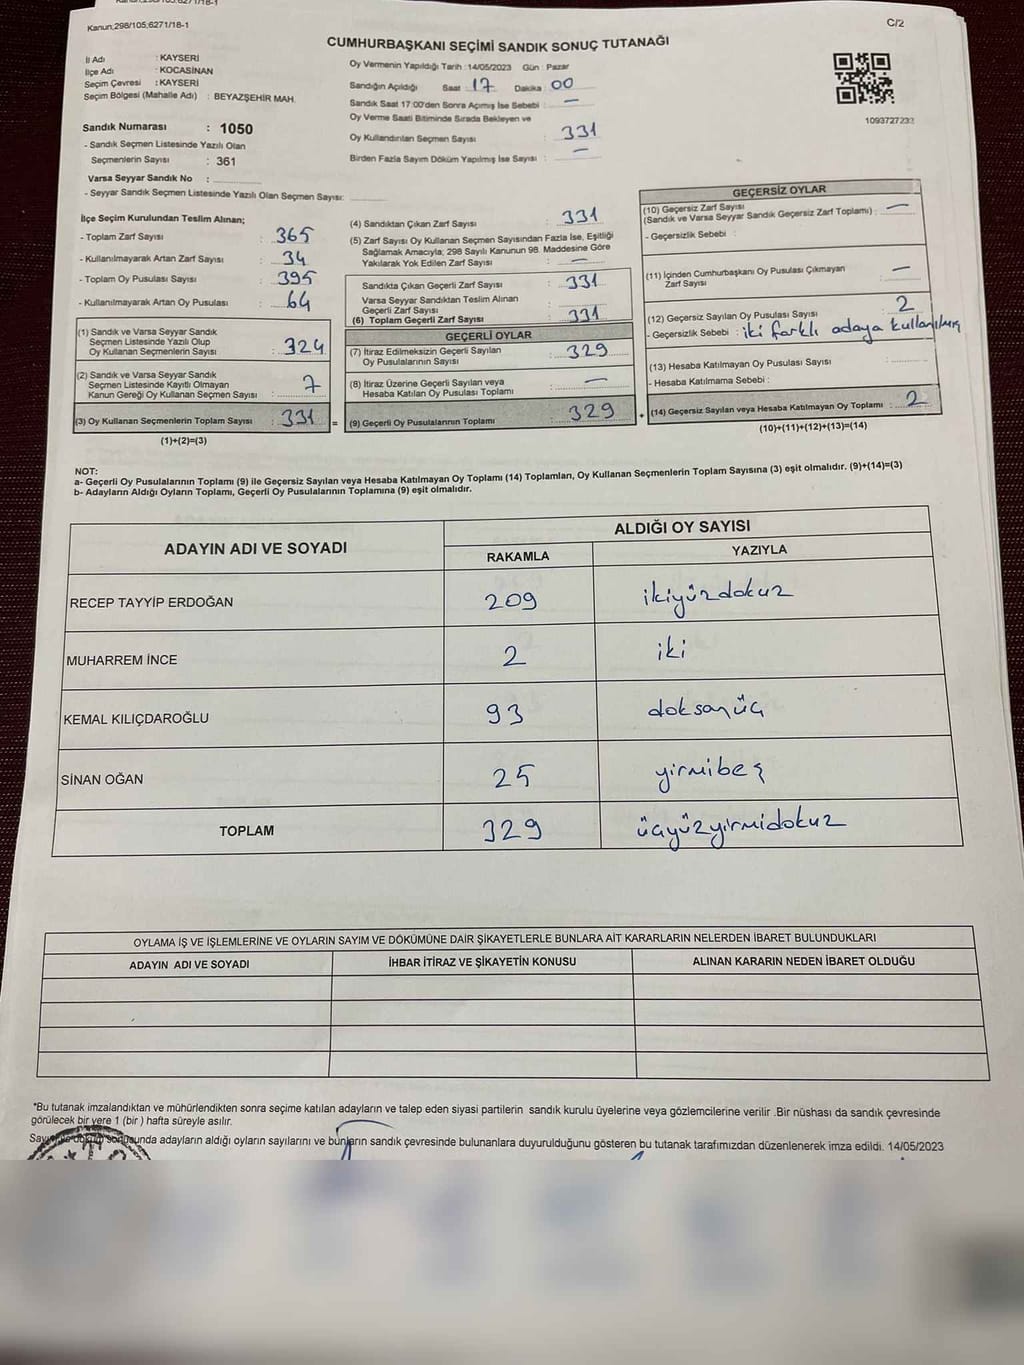 Kanun;298/105;6271/18-1
C/2
CUMHURBAŞKANI SEÇİMİ SANDIK SONUÇ TUTANAĞI
İl Adı : KAYSERİ
İlçe Adı : KOCASİNAN
Seçim Çevresi : KAYSERİ
Seçim Bölgesi (Mahalle Adı) : BEYAZŞEHİR MAH.
Sandık Numarası : 1050
- Sandık Seçmen Listesinde Yazılı Olan
Seçmenlerin Sayısı : 361
Varsa Seyyar Sandık No :
- Seyyar Sandık Seçmen Listesinde Yazılı Olan Seçmen Sayısı:
Oy Vermenin Yapıldığı Tarih : 14/05/2023 Gün : Pazar
Sandığın Açıldığı Saat : 17 Dakika : 00
Sandık Saat 17:00'den Sonra Açımış İse Sebebi : —
Oy Verme Saati Bitiminde Sırada Bekleyen ve
Oy Kullandırılan Seçmen Sayısı : 331
Birden Fazla Sayım Döküm Yapılmış İse Sayısı : —
1093727233
İlçe Seçim Kurulundan Teslim Alınan;
- Toplam Zarf Sayısı : 365
- Kullanılmayarak Artan Zarf Sayısı : 34
- Toplam Oy Pusulası Sayısı : 395
- Kullanılmayarak Artan Oy Pusulası : 64
(1) Sandık ve Varsa Seyyar Sandık
Seçmen Listesinde Yazılı Olup
Oy Kullanan Seçmenlerin Sayısı : 324
(2) Sandık ve Varsa Seyyar Sandık
Seçmen Listesinde Kayıtlı Olmayan
Kanun Gereği Oy Kullanan Seçmen Sayısı : 7
(3) Oy Kullanan Seçmenlerin Toplam Sayısı : 331 =
(1)+(2)=(3)
(4) Sandıktan Çıkan Zarf Sayısı : 331
(5) Zarf Sayısı Oy Kullanan Seçmen Sayısından Fazla İse, Eşitliği
Sağlamak Amacıyla; 298 Sayılı Kanunun 98. Maddesine Göre
Yakılarak Yok Edilen Zarf Sayısı : —
Sandıkta Çıkan Geçerli Zarf Sayısı : 331
Varsa Seyyar Sandıktan Teslim Alınan
Geçerli Zarf Sayısı
(6) Toplam Geçerli Zarf Sayısı : 331
GEÇERLİ OYLAR
(7) İtiraz Edilmeksizin Geçerli Sayılan
Oy Pusulalarının Sayısı : 329
(8) İtiraz Üzerine Geçerli Sayılan veya
Hesaba Katılan Oy Pusulası Toplamı : —
(9) Geçerli Oy Pusulalarının Toplamı : 329 +
GEÇERSİZ OYLAR
(10) Geçersiz Zarf Sayısı
(Sandık ve Varsa Seyyar Sandık Geçersiz Zarf Toplamı) : —
- Geçersizlik Sebebi :
(11) İçinden Cumhurbaşkanı Oy Pusulası Çıkmayan
Zarf Sayısı : —
(12) Geçersiz Sayılan Oy Pusulası Sayısı : 2
- Geçersizlik Sebebi : iki farklı adaya kullanılmış
(13) Hesaba Katılmayan Oy Pusulası Sayısı :
- Hesaba Katılmama Sebebi :
(14) Geçersiz Sayılan veya Hesaba Katılmayan Oy Toplamı : 2
(10)+(11)+(12)+(13)=(14)
NOT:
a- Geçerli Oy Pusulalarının Toplamı (9) ile Geçersiz Sayılan veya Hesaba Katılmayan Oy Toplamı (14) Toplamları, Oy Kullanan Seçmenlerin Toplam Sayısına (3) eşit olmalıdır. (9)+(14)=(3)
b- Adayların Aldığı Oyların Toplamı, Geçerli Oy Pusulalarının Toplamına (9) eşit olmalıdır.
ADAYIN ADI VE SOYADI
ALDIĞI OY SAYISI
RAKAMLA YAZIYLA
RECEP TAYYİP ERDOĞAN 209 ikiyüzdokuz
MUHARREM İNCE 2 iki
KEMAL KILIÇDAROĞLU 93 doksanüç
SİNAN OĞAN 25 yirmibeş
TOPLAM 329 üçyüzyirmidokuz
OYLAMA İŞ VE İŞLEMLERİNE VE OYLARIN SAYIM VE DÖKÜMÜNE DAİR ŞİKAYETLERLE BUNLARA AİT KARARLARIN NELERDEN İBARET BULUNDUKLARI
ADAYIN ADI VE SOYADI İHBAR İTİRAZ VE ŞİKAYETİN KONUSU ALINAN KARARIN NEDEN İBARET OLDUĞU
*Bu tutanak imzalandıktan ve mühürlendikten sonra seçime katılan adayların ve talep eden siyasi partilerin sandık kurulu üyelerine veya gözlemcilerine verilir .Bir nüshası da sandık çevresinde
görülecek bir yere 1 (bir ) hafta süreyle asılır.
Sayım ve döküm sonucunda adayların aldığı oyların sayılarını ve bunların sandık çevresinde bulunanlara duyurulduğunu gösteren bu tutanak tarafımızdan düzenlenerek imza edildi. 14/05/2023